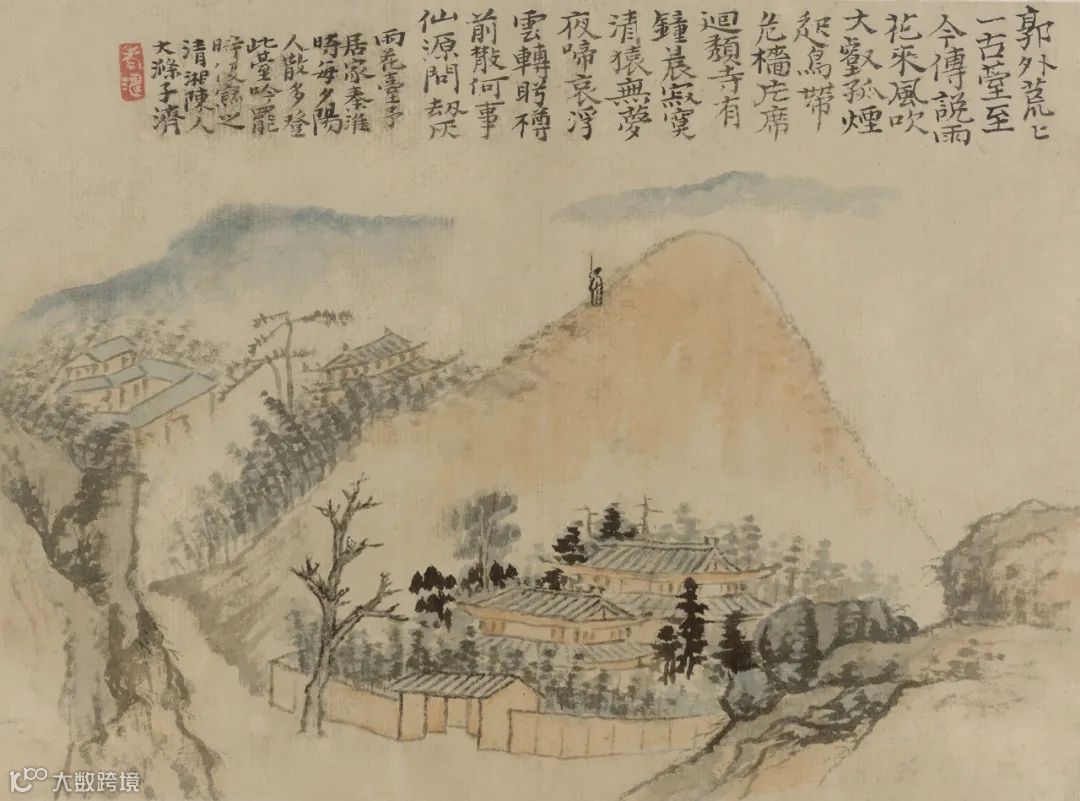 郭外荒〻
一古臺至
今傳説雨
花來風吹
大壑孤煙
起鳥帶
危檣片席
迴頹寺有
鐘晨寂寞
清猿無夢
夜啼哀浮
雲轉眄樽
前散何事
仙源問劫灰
雨花臺予
居家秦淮
時每夕陽
人散多登
此臺吟罷
時復寫之
清湘陳人
大滌子濟
大数跨境